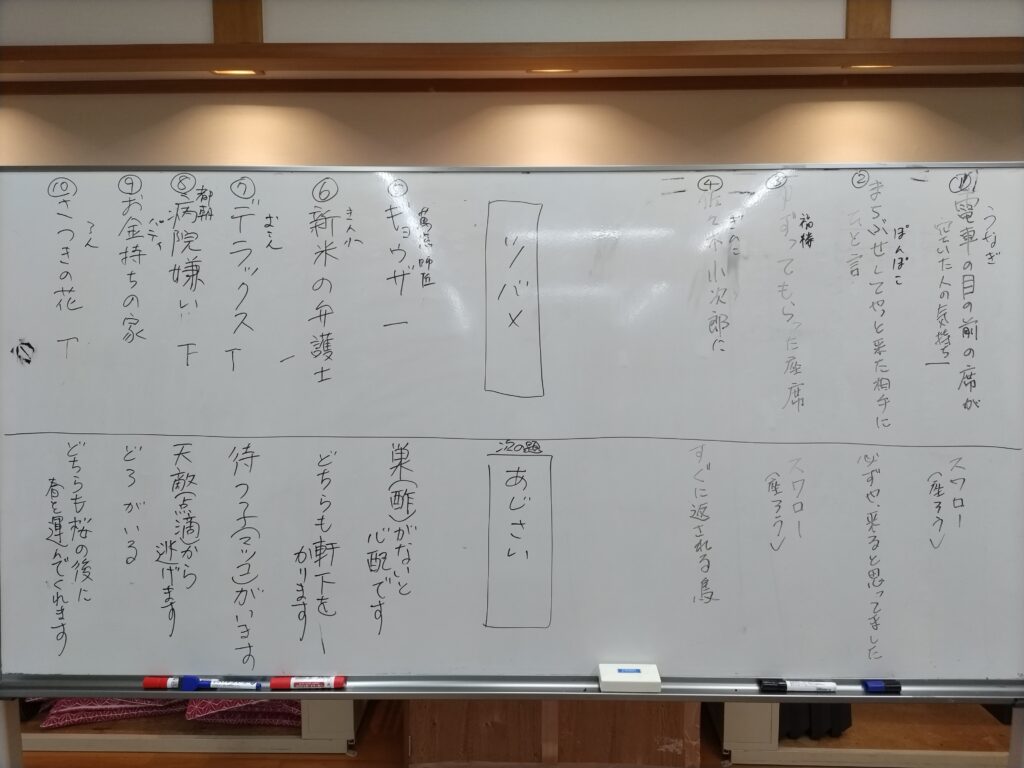 ① 電車の目の前の席が
空いた人の気持ち
うなぎ
スワロー
(座ろう)
② まちぶせしてやっと来た相手に
ひと言
ぽんぽこ
必ずや、来ると思ってました
③ ずってもらった座席
福禄
スワロー
(座ろう)
④ 佐々木小次郎に
きのこ
すぐに返される鳥
ツバメ
次の題
あじさい
⑤ ギョウザ
師匠
巣(酢)がないと
心配です
⑥ 新米の弁護士
どちらも軒下を
かります
⑦ デラックス
待つ子(マツコ)がいます
⑧ 病院嫌い
都朝
天敵(点滴)から
逃げます
⑨ お金持ちの家
どろがいる
⑩ さつきの花
どちらも桜の後に
春を運んでくれます